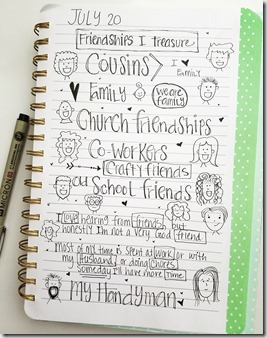 JULY 20
Friendships I treasure
Cousins
I ♥ FAMILY
Family &
we are FAMILY
Church friendships
Co-workers
Crafty friends
Old School friends
I love hearing from friends, but
honestly I'm not a very Good friend.
Most of my time is spent at work or with
my Husband or doing chores.
Someday I'll have more time.
My Handyman
MICRON